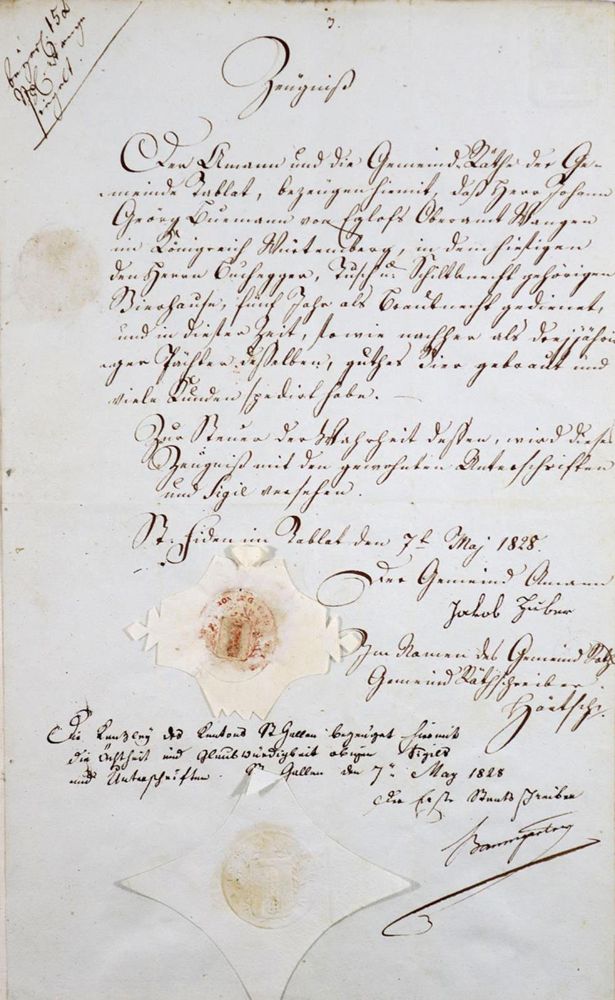 3.
Zeügniß
Der Amann und die Gemeind Räthe der Ge-
meinde Tablat, bezeugen hiemit, daß Herr Johann
Georg Buemann von Eglofs Oberamt Wangen
im Königreich Würtemberg, in dem hiesigen
den Herrn Buchegger, Tusch u. Schildknecht gehörigen
Bierhause, fünf Jahr als Braüknecht gedienet,
und in dieser Zeit, so wie nachher als dreyjähri-
ger Pächter desselben, guthes Bier gebraut und
viele Kunden spedirt habe. —
Zur Steuer der Wahrheit dessen, wird dieses
Zeügniß mit den gewohnten Unterschriften
und Sigil versehen.
St. Fiden im Tablat den 7t. Maj 1828.
Der Gemeind Amann
Jakob Huber
Im Namen des Gemeind Raths
Gemeind Rathschreiber
Die Kanzley des Kantons St Gallen bezeuget hiermit
die Ächtheit und Glaubwürdigkeit obigen Sigils
und Unterschriften. St Gallen den 7n. May 1828
Der Erste Staatsschreiber
Baumgartner